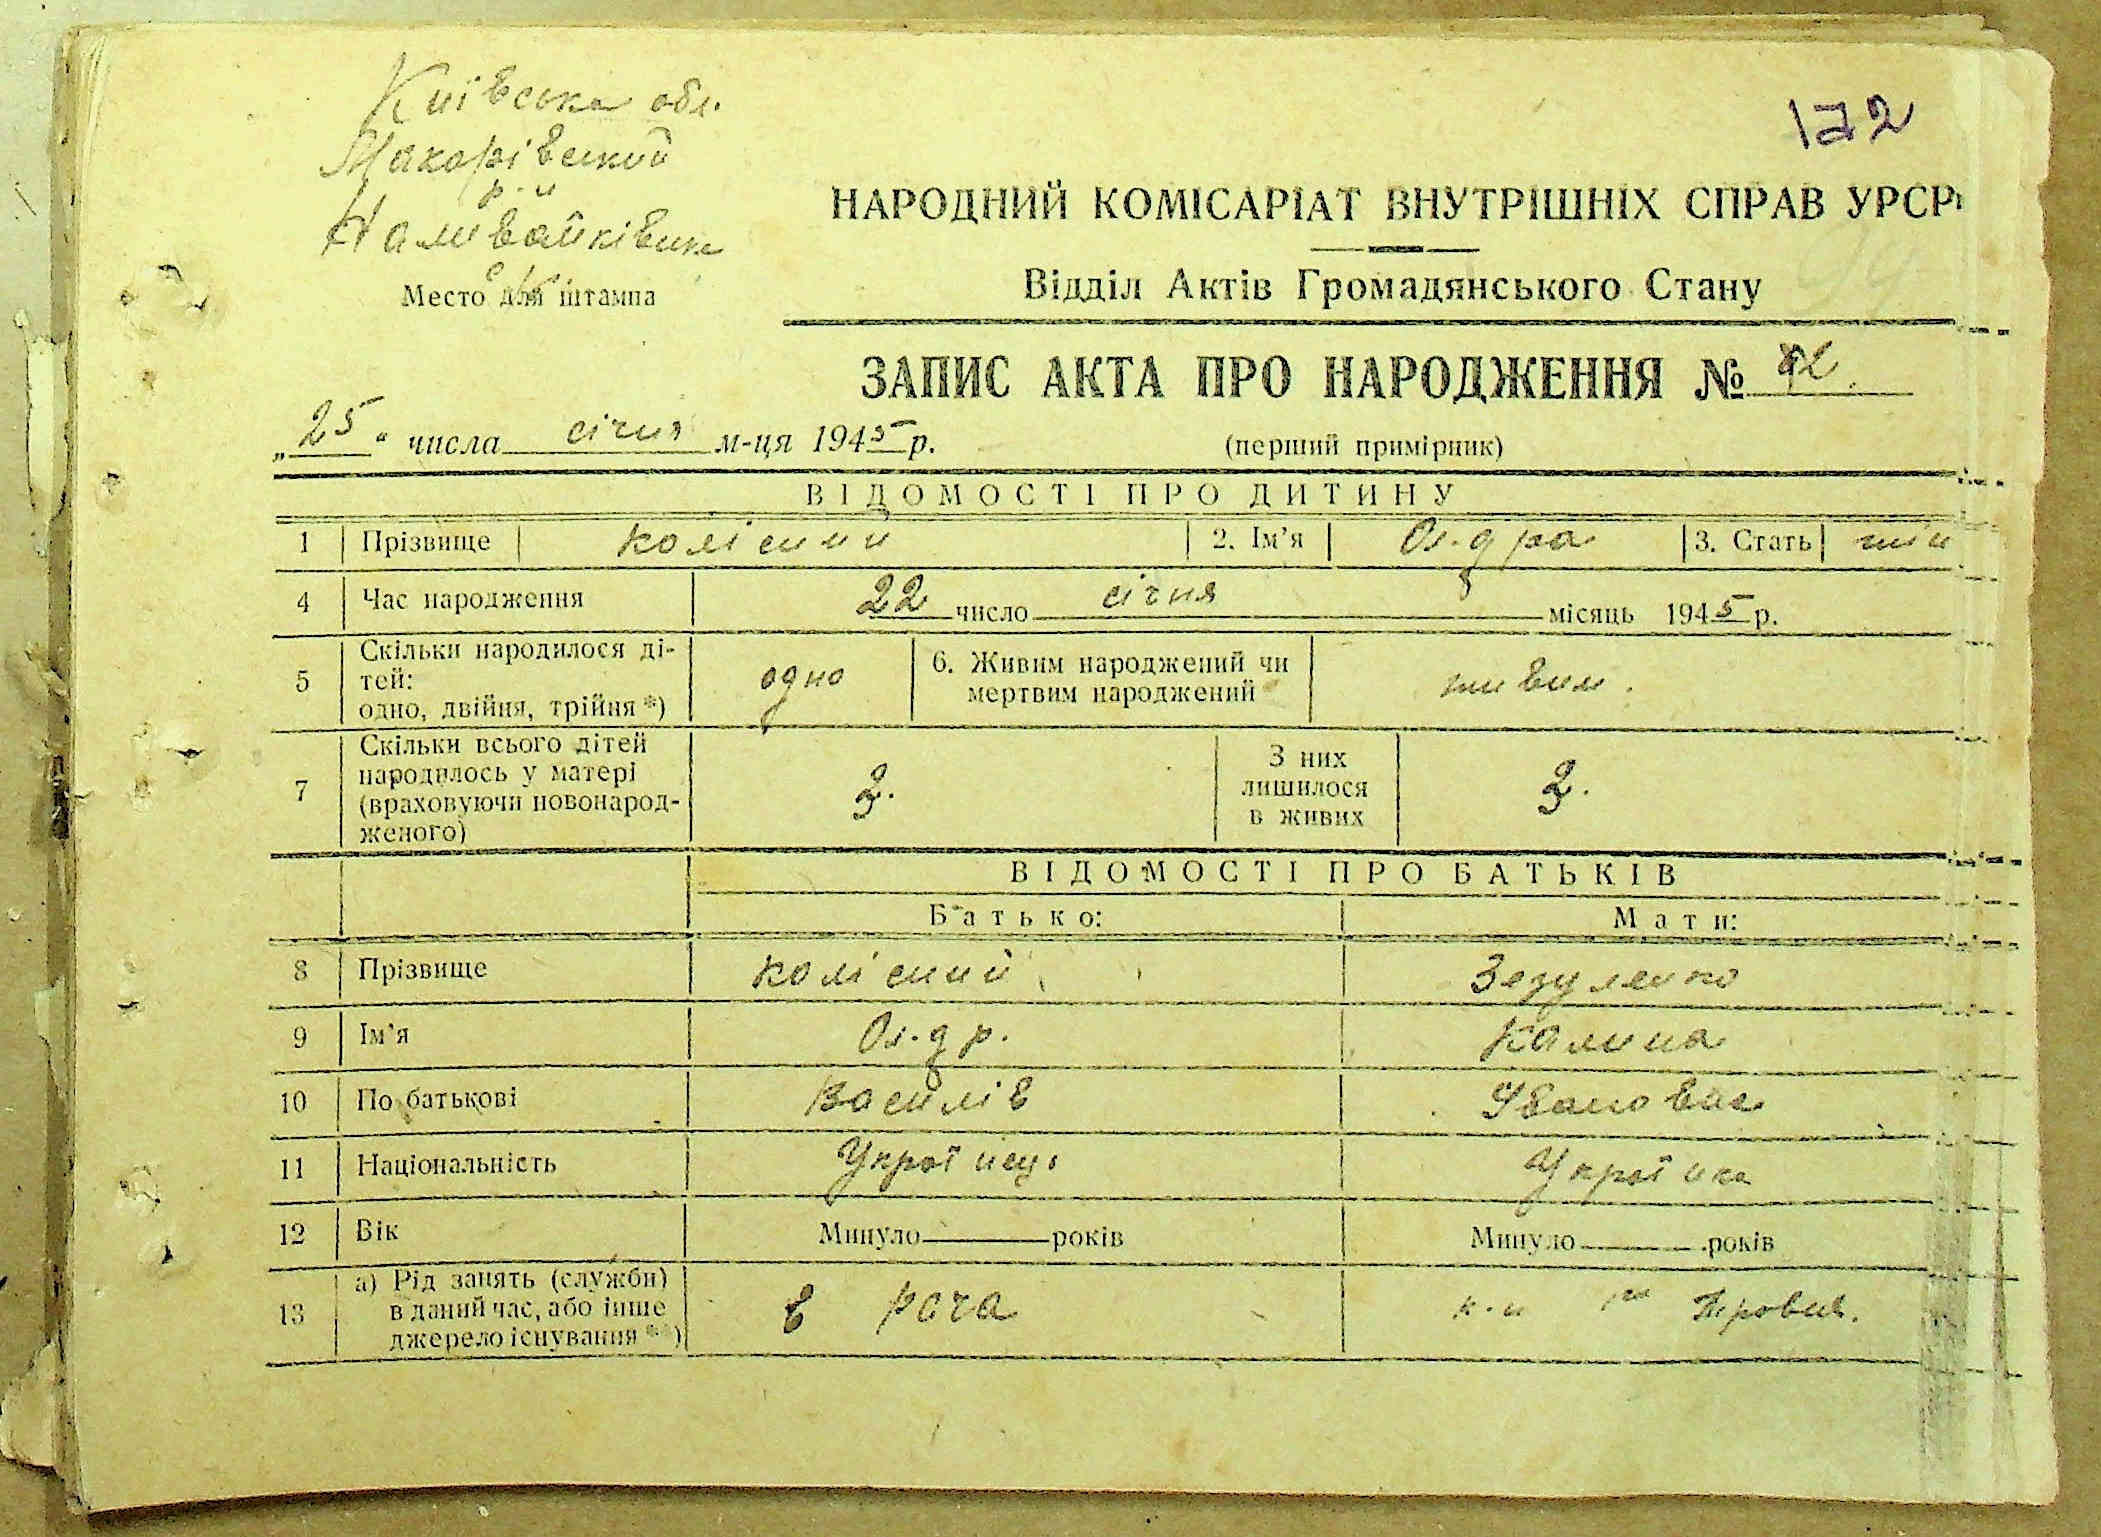 Київська обл.
172
Макарівський
р-н
НАРОДНИЙ КОМІСАРІАТ ВНУТРІШНІХ СПРАВ УРСР
Наливайківська
с/р
Відділ Актів Громадянського Стану
Место для штампа
ЗАПИС АКТА ПРО НАРОДЖЕННЯ №
„25“ числа січня м-ця 1945 р.
(перший примірник)
ВІДОМОСТІ ПРО ДИТИНУ
1 Прізвище Колісний 2. Ім'я Ол-дра 3. Стать жін
4 Час народження 22 число січня місяць 1945 р.
5 Скільки народилося ді-
тей:
одно, двійня, трійня *) одно 6. Живим народжений чи
мертвим народжений живим.
7 Скільки всього дітей
народилось у матері
(враховуючи новонарод-
женого)
З них
лишилося
в живих
ВІДОМОСТІ ПРО БАТЬКІВ
Батько: Мати:
8 Прізвище Колісний Зезуленко
9 Ім'я Ол-др. Калина
10 По батькові Василів Івановна
11 Національність Українец Українка
12 Вік Минуло років Минуло років
13 а) Рід занять (служби)
в даний час, або інше
джерело існування **)